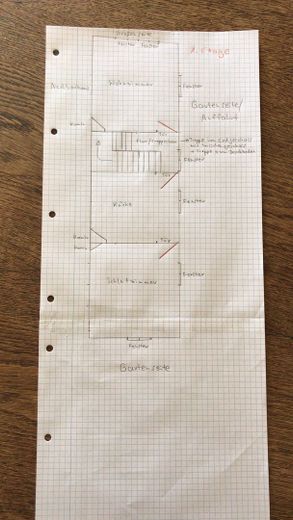 Straßenseite
1. Etage
Fenster Fenster
Wohnzimmer
Fenster
Gartenseite/
Auffahrt
Kamin
Tür
Flur/Treppenhaus
Fenster
Tür
Küche
Fenster
Kamin
Tür
Kamin
Fenster
Schlafzimmer
Fenster
Gartenseite